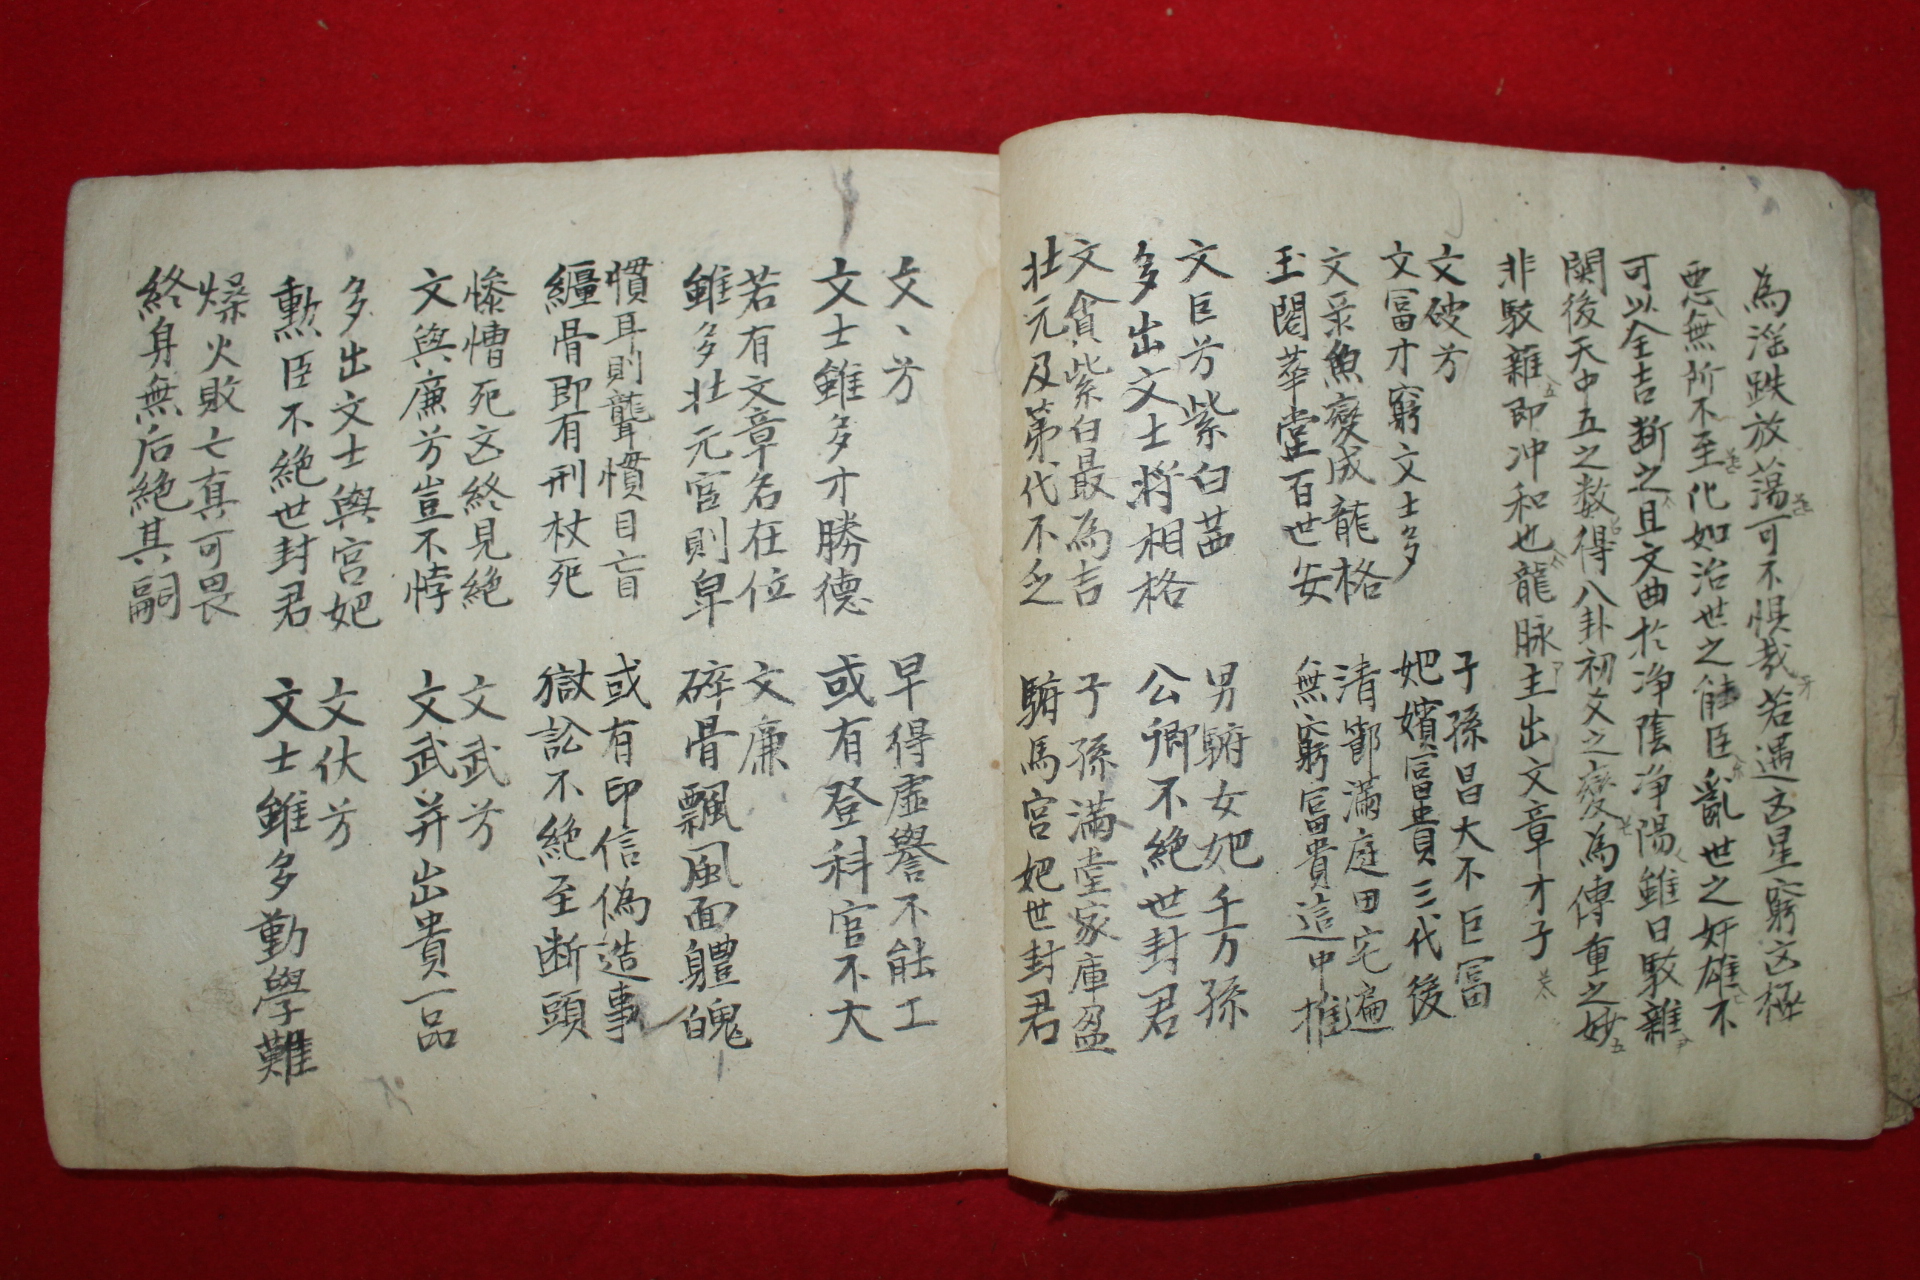 為滛跌放蕩可不惧哉若遇这星窮这極
惡無所不至化如治世之能臣亂世之奸雄不
可以全吉断之且文曲於净陰净陽雖曰駁雜
関後天中五之数得八卦初爻之變為傳重之妙
非駁雜即冲和也龍脉主出文章才子
文破芳
文富才窮文士多
子孫昌大不巨富
妑嬪富貴三代後
文彔魚變成龍格
玉閣華堂百世安
清鄒滿庭田宅遍
無窮富貴這中推
文巨芳紫白茜
多出文士將相格
男駙女妑千万孫
公卿不絶世封君
文貪紫白最為吉
壯元及第代不乏
子孫滿堂家庫盈
駙馬宮妑世封君
文丶芳
文士雖多才勝德
早得虛譽不能工
或有登科官不大
若有文章名在位
雖多壯元官則卑
文廉
碎骨飄風面體醜
慣耳則聾慣目盲
纏骨即有刑杖死
或有印信偽造事
獄訟不絶至断頭
惨慒死这終見絶
文與廉芳豈不悖
文武芳
文武并出貴一品
多出文士與宮妑
勲臣不絶世封君
文伏芳
文士雖多勤學難
燥火敗亡真可畏
終身無后絶其嗣